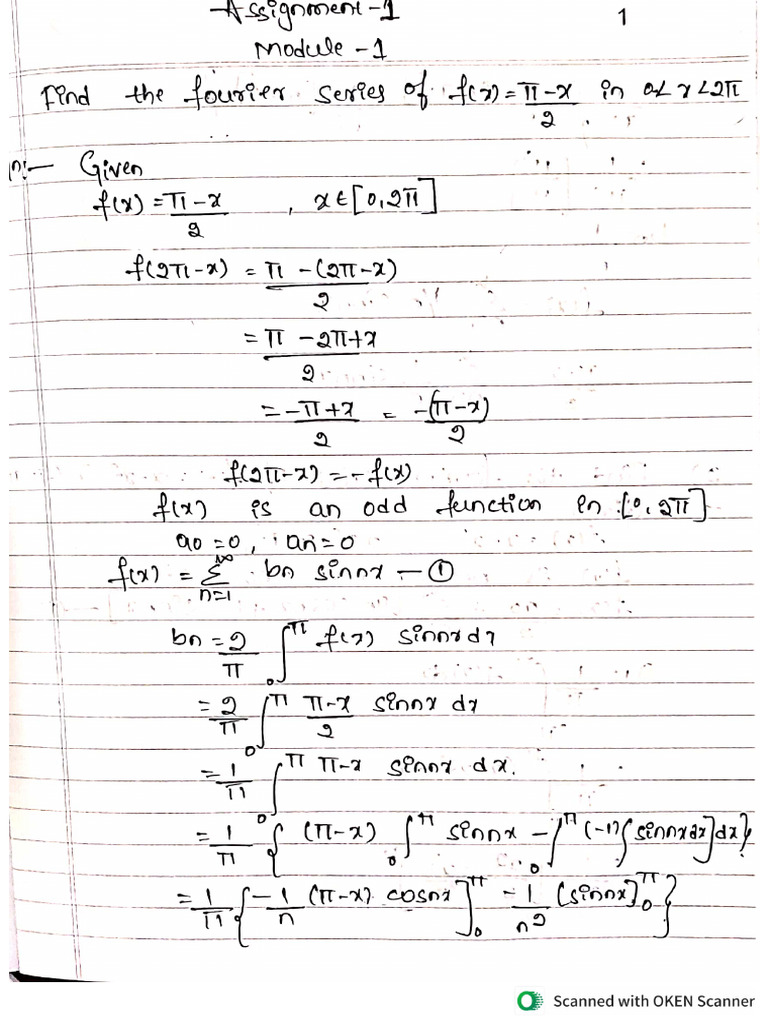 Assignment-1
1
Module -1
Find the fourier series of f(x)=π-x/2 in 0<x<2π
n:- Given
f(x) = π-x/2 , x∈[0,2π]
f(2π-x) = π-(2π-x)/2
= π-2π+x/2
= -π+x/2 = -(π-x)/2
f(2π-x) = -f(x)
f(x) is an odd function in [0,2π]
a0=0, an=0
f(x) = ∞Σn=1 bn sinnx - ①
bn = 2/π ∫0^π f(x) sinnx dx
= 2/π ∫0^π π-x/2 sinnx dx
= 1/π ∫0^π π-x sinnx dx.
= 1/π {(π-x) ∫0^π sinnx - ∫0^π (-1)∫sinnxdx]dx}
= 1/π {-1/n (π-x) cosnx]0^π -1/n² (sinnx]0^π}
Scanned with OKEN Scanner